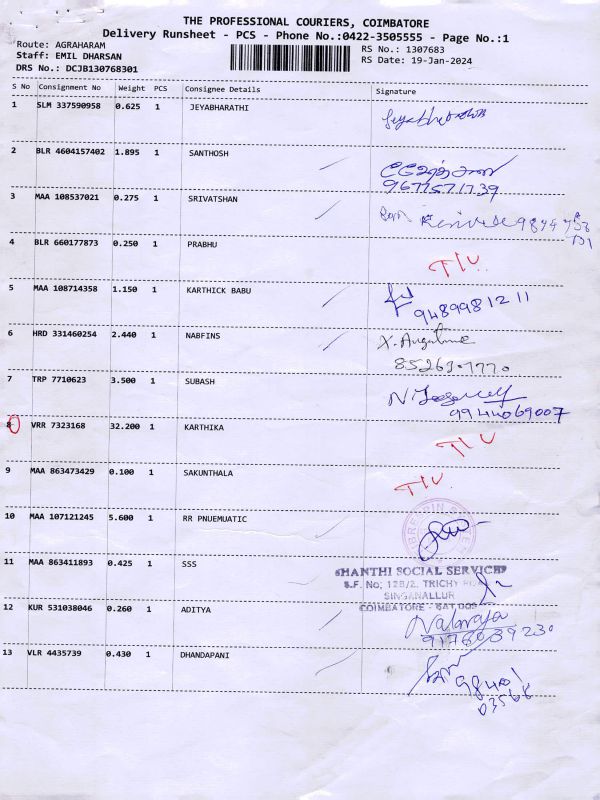 THE PROFESSIONAL COURIERS, COIMBATORE
Delivery Runsheet - PCS - Phone No.:0422-3505555 - Page No.:1
Route: AGRAHARAM
Staff: EMIL DHARSAN
DRS No.: DCJB130768301
RS No.: 1307683
RS Date: 19-Jan-2024
S No Consignment No Weight PCS Consignee Details Signature
1 SLM 337590958 0.625 1 JEYABHARATHI
2 BLR 4604157402 1.895 1 SANTHOSH
9677571739
3 MAA 108537021 0.275 1 SRIVATSHAN
4 BLR 660177873 0.250 1 PRABHU T/U.
5 MAA 108714358 1.150 1 KARTHICK BABU
9489981211
6 HRD 331460254 2.440 1 NABFINS
7 TRP 7710623 3.500 1 SUBASH
9944069007
8 VRR 7323168 32.200 1 KARTHIKA T/U
9 MAA 863473429 0.100 1 SAKUNTHALA T/U.
10 MAA 107121245 5.600 1 RR PNUEMUATIC
11 MAA 863411893 0.425 1 SSS
SHANTHI SOCIAL SERVICES
S.F. No; 12B/2, TRICHY
SINGANALLUR
COIMBATORE - 641 005
12 KUR 531038046 0.260 1 ADITYA
Nataraja
9176039230
13 VLR 4435739 0.430 1 DHANDAPANI
98401
03568